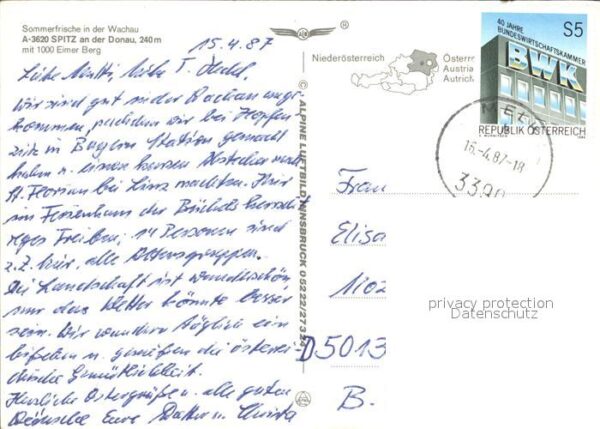 Sommerfrische in der Wachau
A-3620 SPITZ an der Donau, 240 m
mit 1000 Eimer Berg
15.4.87
Liebe Mutti, liebe T.
Wir sind gut in der Wachau ange-
kommen, nachdem wir bei Hopfen
in Bayern Station gemacht
haben u. einen kurzen Abstecher nach
St. Florian bei Linz machten. Hier
im Ferienhaus der herrscht
reges Treiben; 14 Personen sind
z.Z. hier, alle Altersgruppen.
Die Landschaft ist wunderschön,
nur das Wetter könnte besser
sein. Wir wandern täglich ein
bißchen u. genießen die österrei-
chische Gemütlichkeit.
Herzliche Ostergrüße u. alle guten
Wünsche Eure Walter u. Christa
© ALPINE LUFTBILD INNSBRUCK 05222/27324
®
Niederösterreich
Österr
Austria
Autrich
40 JAHRE
BUNDESWIRTSCHAFTSKAMMER
S5
BWK
REPUBLIK ÖSTERREICH
MELK
16.-4.87-18
3390
Frau
Elisa
1102
privacy protection
Datenschutz
D5013
B.